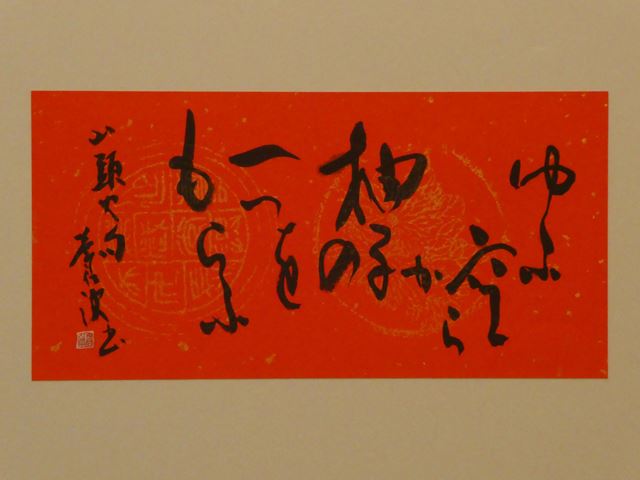 ゆふ
空から
柚子の
一つを
もらふ
山頭火句
書